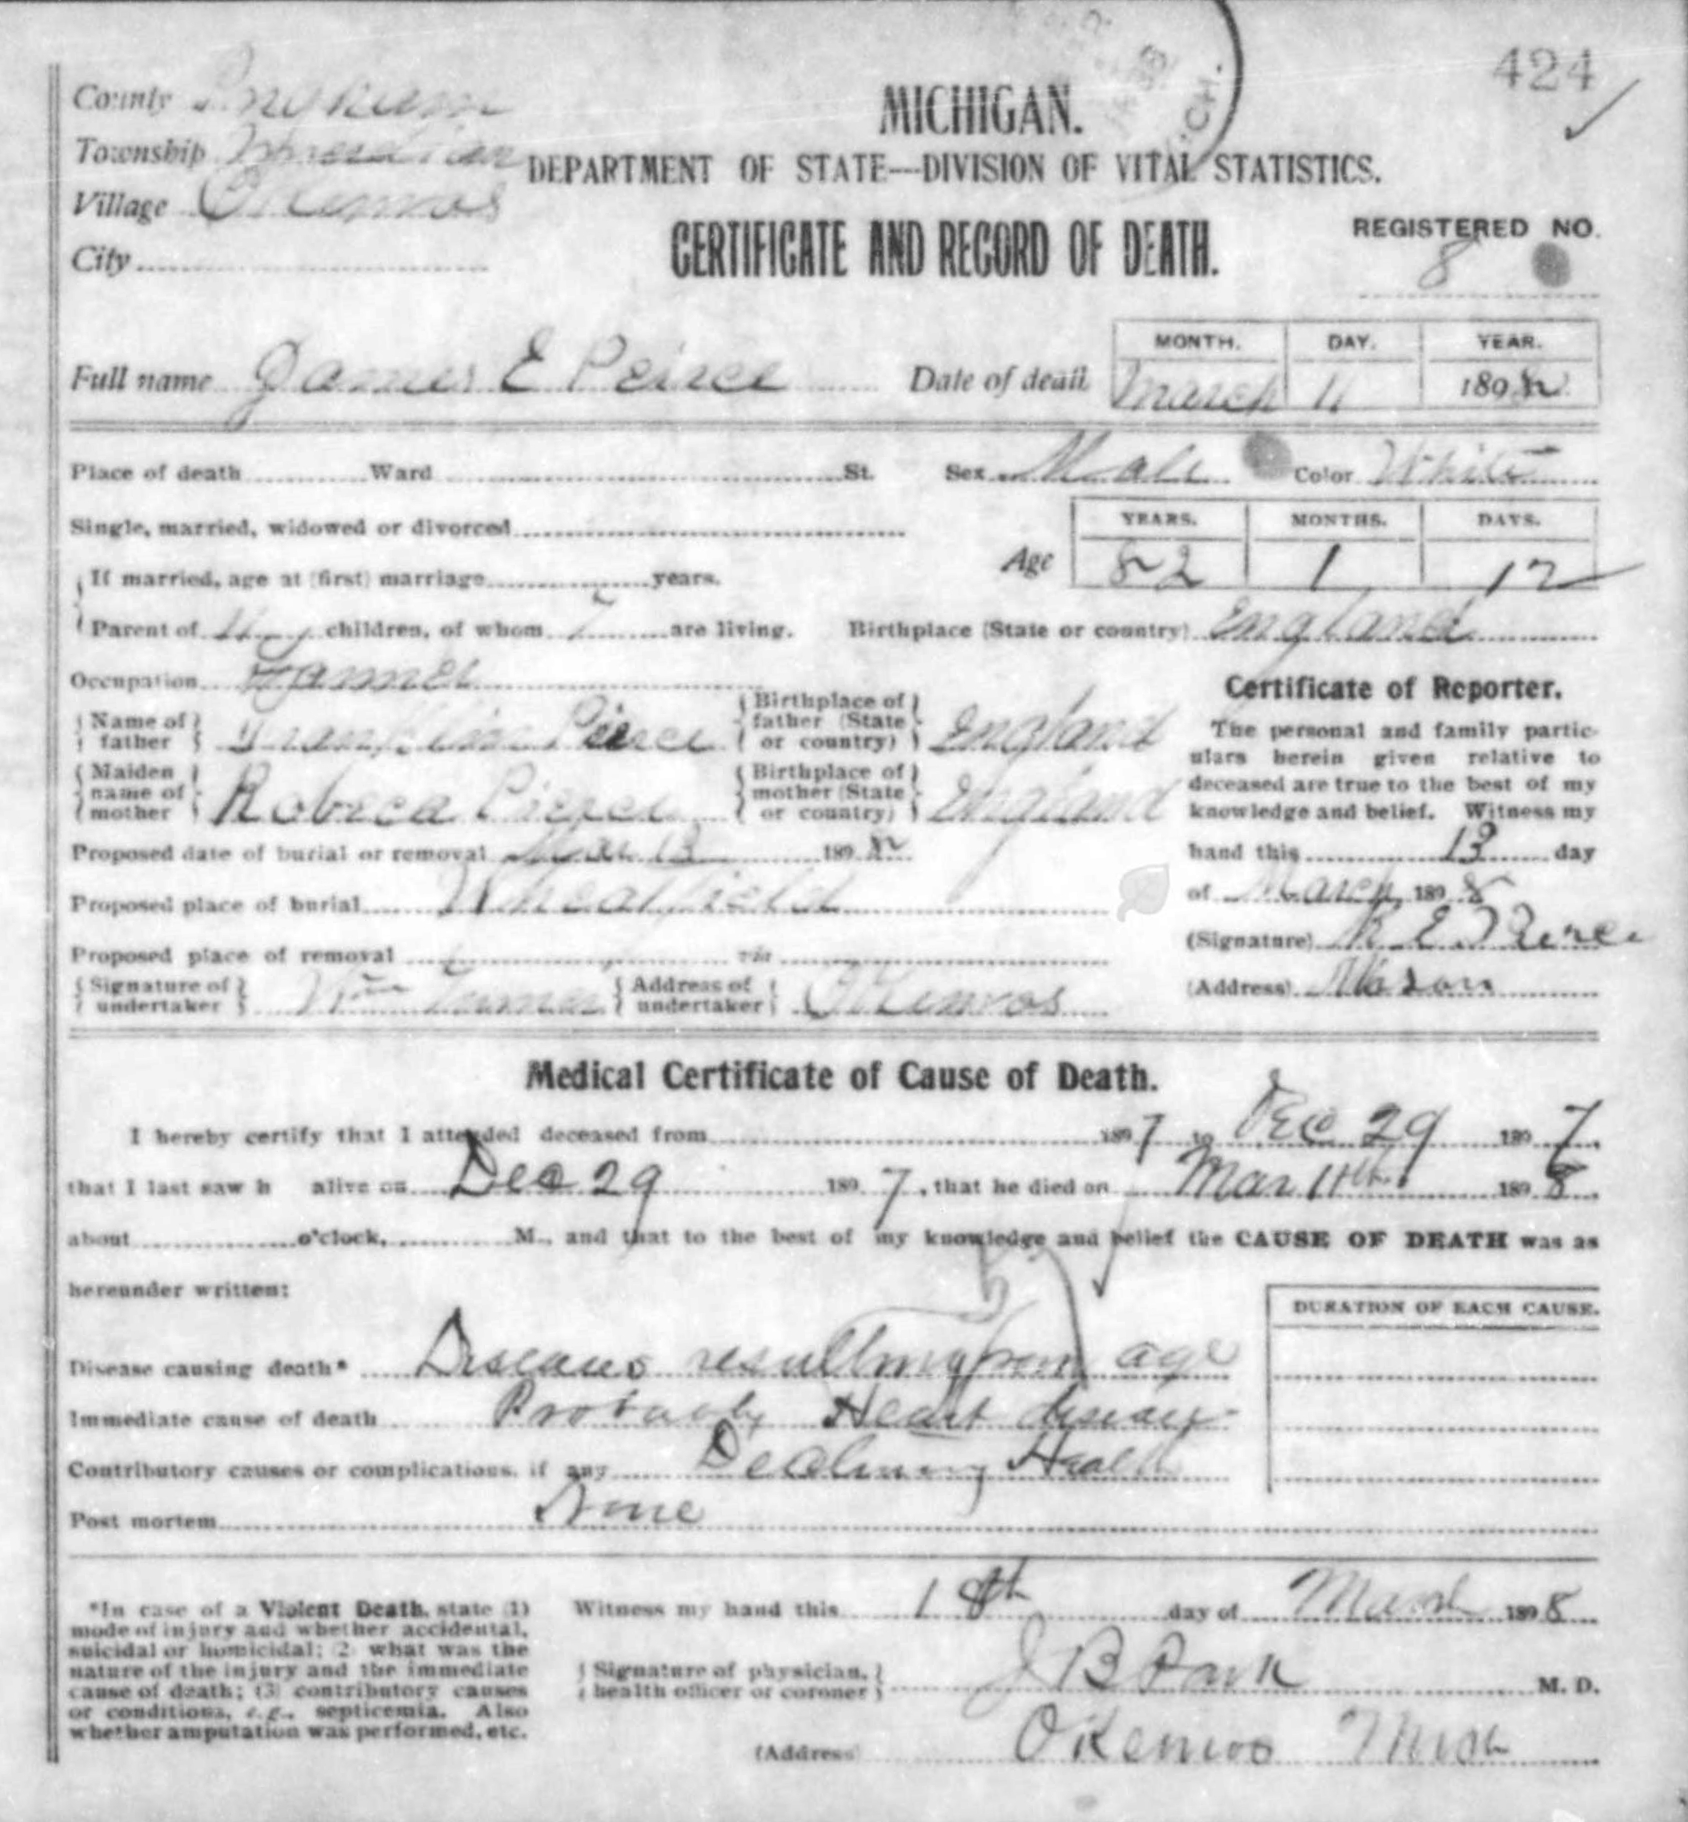 424
County Ingham
Township Meridian
Village Okemos
City
MICHIGAN.
DEPARTMENT OF STATE—DIVISION OF VITAL STATISTICS.
CERTIFICATE AND RECORD OF DEATH.
REGISTERED NO.
8
Full name James E Peirce Date of death
MONTH. DAY. YEAR.
March 11 1898
Place of death Ward St. Sex Male Color White
Single, married, widowed or divorced
Age YEARS. MONTHS. DAYS.
82 1 12
If married, age at (first) marriage years.
Parent of 11 children, of whom 7 are living. Birthplace (State or country) England
Occupation Farmer
Name of father Franklin Pierce Birthplace of father (State or country) England
Maiden name of mother Robeca Pierce Birthplace of mother (State or country) England
Proposed date of burial or removal Mar 13 1898
Proposed place of burial Wheatfield
Proposed place of removal via
Signature of undertaker Wm Address of undertaker Okemos
Certificate of Reporter.
The personal and family partic-
ulars herein given relative to
deceased are true to the best of my
knowledge and belief. Witness my
hand this 13 day
of March 1898
(Signature) R. E. Peirce
(Address) Mason
Medical Certificate of Cause of Death.
I hereby certify that I attended deceased from 1897 to Dec 29 1897,
that I last saw h alive on Dec 29 1897, that he died on Mar 11th 1898,
about o'clock, M., and that to the best of my knowledge and belief the CAUSE OF DEATH was as
hereunder written:
DURATION OF EACH CAUSE.
Disease causing death* Diseases resulting from age
Immediate cause of death Probably Heart disease
Contributory causes or complications, if any Declining Health
Post mortem None
*In case of a Violent Death, state (1)
mode of injury and whether accidental,
suicidal or homicidal; (2) what was the
nature of the injury and the immediate
cause of death; (3) contributory causes
or conditions, e.g., septicemia. Also
whether amputation was performed, etc.
Witness my hand this 18th day of March 1898
Signature of physician, health officer or coroner J B Park M. D.
(Address) Okemos Mich